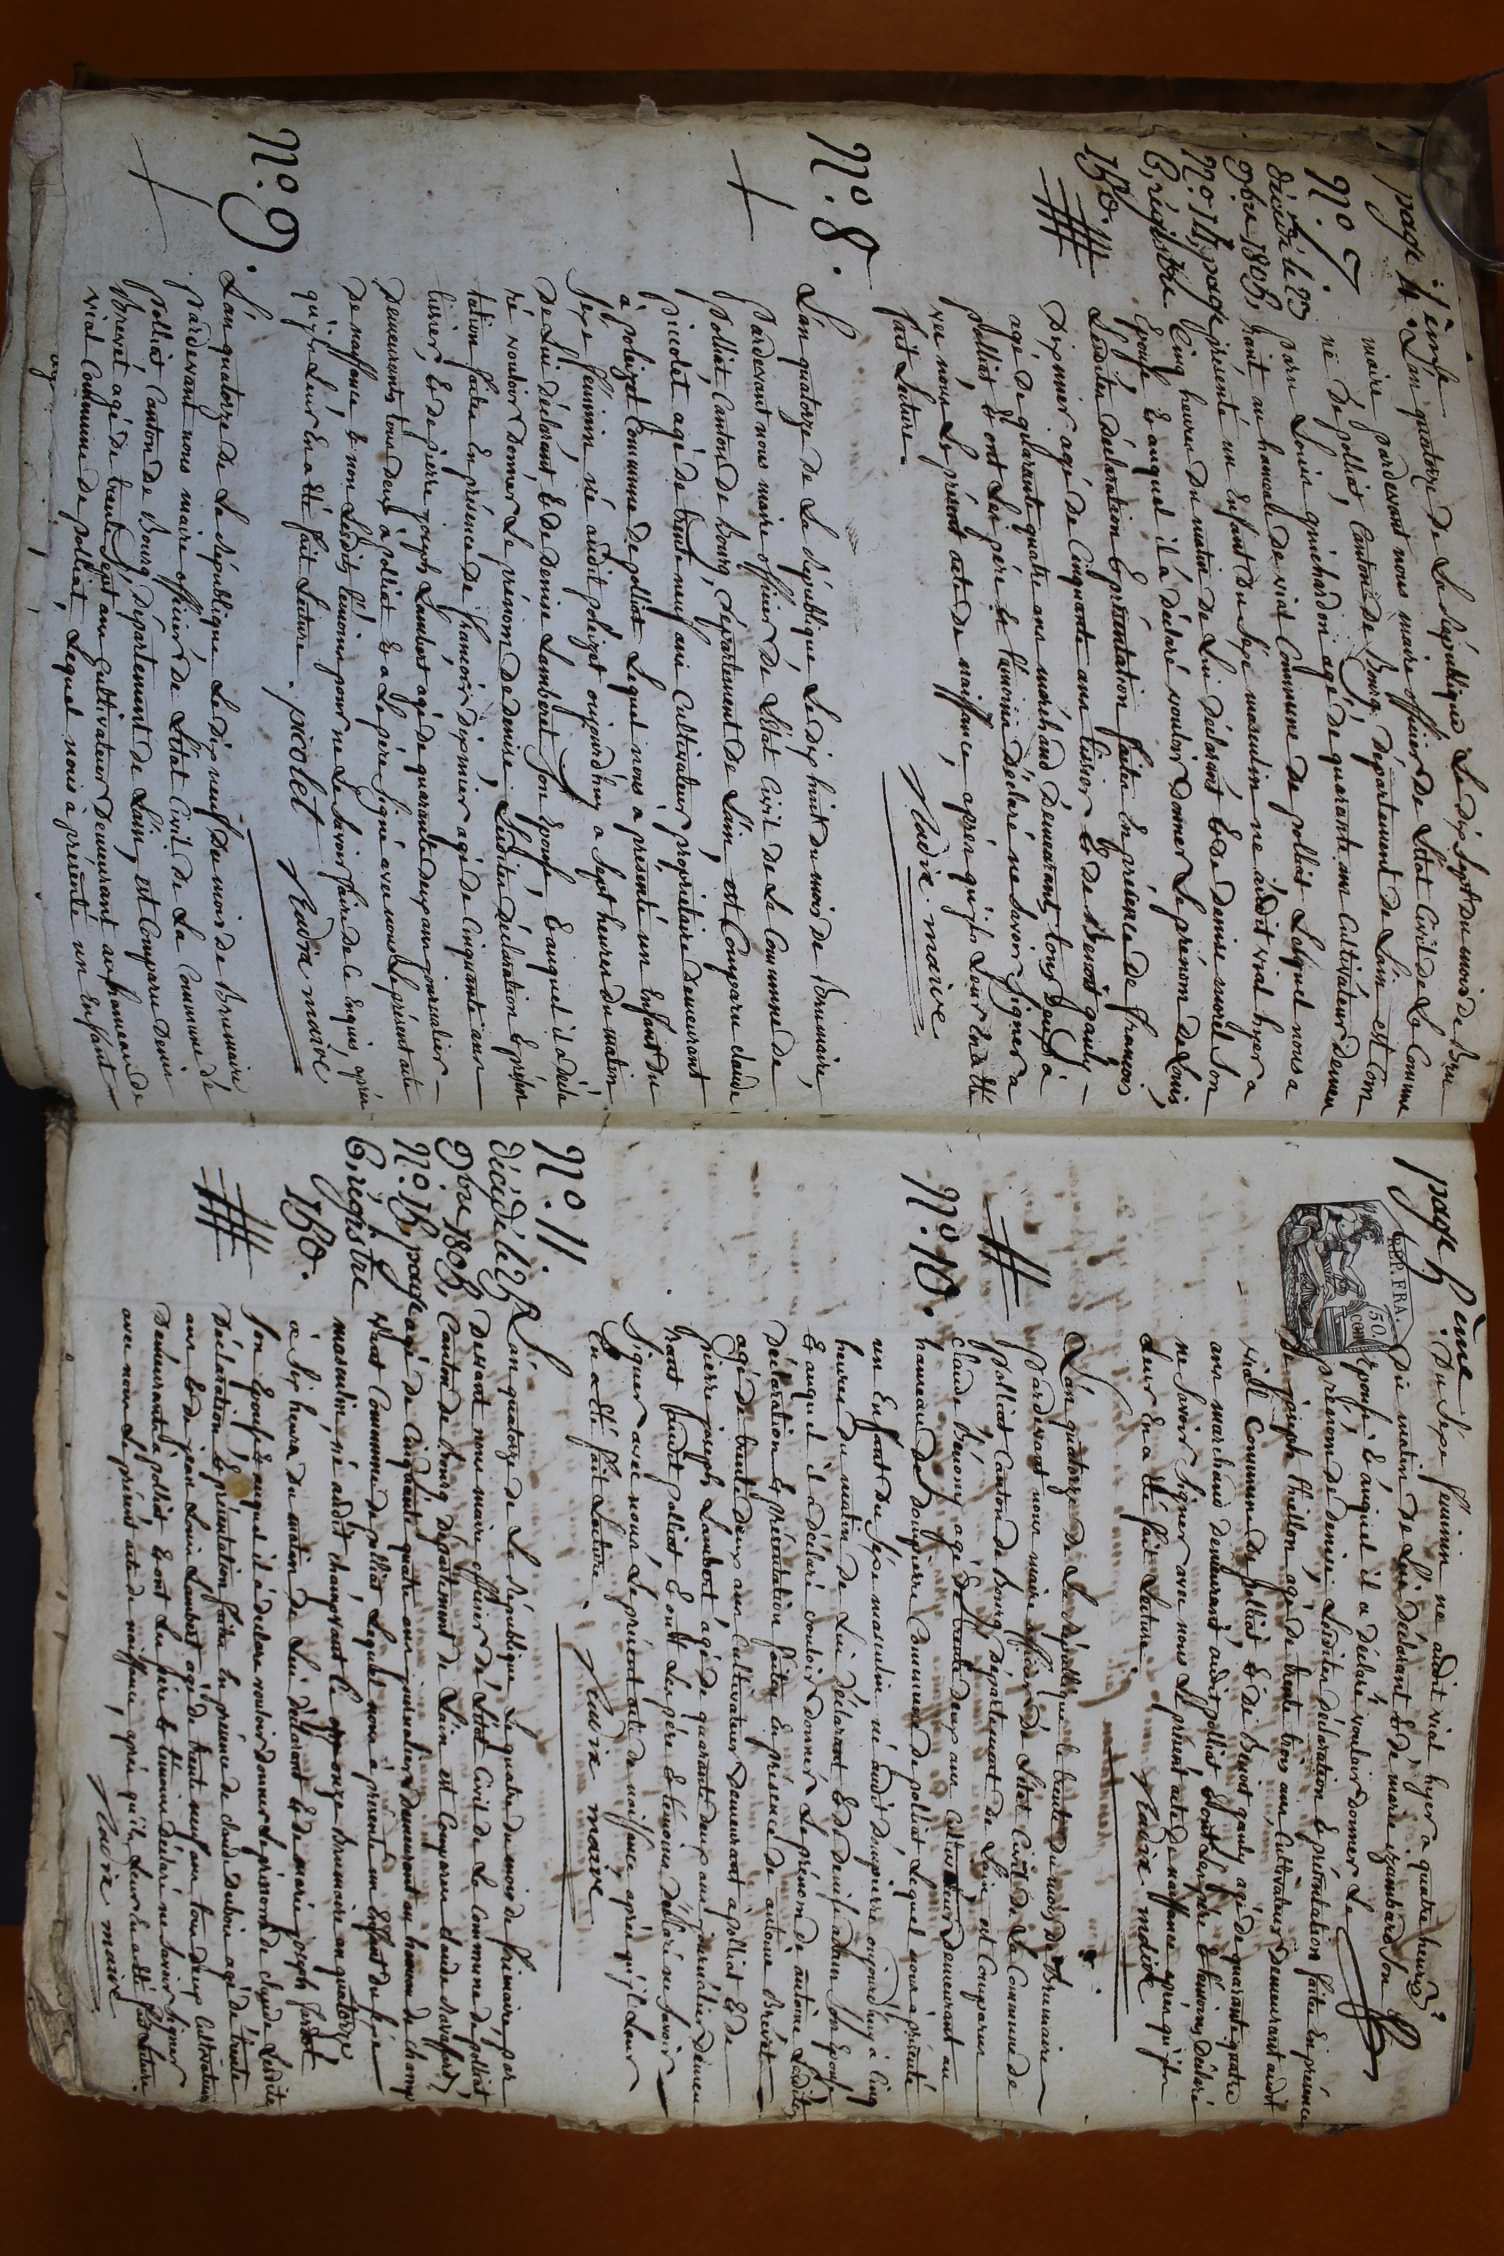 page 4.ième
N.º 7
décédé le 23
9bre 1805,
N.º 14, page
6, régistre
150.
L'an quatorze de La république Le dix sept du mois de Bru
maire pardevant nous maire officier de L'état Civil de La Commune
de polliat, Canton de Bourg, département de L'ain est Com
paru Louis guichardon agé de quarante ans Cultivateur demeu
rant au hameau de viat Commune de polliat Lequel nous a
présenté un Enfant du Sexe masculin né audit viat hyer a
Cinq heures du matin de Lui déclarant & de denise morel Son
Epouse & auquel il a déclaré vouloir donner Le prénom de Louis,
Lesdites déclaration & présentation faites En présence de françois
dixmier agé de Cinquante ans tissier & de Benoit gauly
agé de quarante quatre ans marchand demeurants tous deux à
polliat & ont Les père & témoins déclaré ne Savoir Signer a
vec nous Le présent acte de naissance, après qu'il Leur En a été
fait Lecture.
maire
N.º 8.
L'an quatorze de La république Le dix huit du mois de Brumaire,
Pardevant nous maire officier de L'état Civil de La Commune de
polliat, Canton de bourg, département de L'ain, est Comparu claude
piccolet agé de trente neuf ans Cultivateur propriétaire demeurant
à poleizat Commune de polliat Lequel nous a présenté un Enfant du
Sexe féminin né audit poleizat aujourd'huy a Sept heures du matin
de Lui déclarant & de denise Lambert Son Epouse, & auquel il a décla
ré vouloir donner Le prénom de denise, Lesdites déclaration & présen
tation faites En présence de françois dixmier agé de Cinquante ans
tissier, & de pierre joseph Lambert agé de quarante deux ans journalier
demeurants tous deux à polliat & a Le père Signé avec nous Le présent acte
de naissance & non Lesdits témoins pour ne Le Savoir faire de ce Enquis, après
qu'il Leur En a été fait Lecture. picolet
maire
N.º 9.
L'an quatorze de La république Le dix neuf du mois de Brumaire
pardevant nous maire officier de L'état Civil de La Commune de
polliat Canton de Bourg, département de L'ain, est Comparu denis
Brevet agé de trente Sept ans Cultivateur demeurant au hameau de
viat Commune de polliat, Lequel nous a présenté un Enfant
page 5ème
REP. FRA.
50.
Du Sexe féminin né audit viat hyer a quatre heures
Du matin de Lui déclarant & de marie Son
Epouse & auquel il a déclaré vouloir donner Le
prénom de denise Lesdites déclaration & présentation faites En présence
De joseph thillon agé de trente trois ans Cultivateur demeurant audit
viat Commune de polliat & de Benoit gauly agé de quarante quatre
ans marchand demeurant audit polliat & ont Les père & témoins déclaré
ne Savoir Signer avec nous Le présent acte de naissance après qu'il
Leur En a été fait Lecture.
maire
N.º 10.
L'an quatorze de La république le trente du mois de Brumaire
Pardevant nous maire officier de L'état Civil de La Commune de
polliat Canton de Bourg, département de L'ain est Comparu
claude Benony agé de trente deux ans Cultivateur demeurant au
hameau de Soupierre Commune de polliat Lequel nous a présenté
un Enfant du Sexe masculin né audit Soupierre aujourd'huy à Cinq
heures du matin de Lui déclarant, & de adam Son Epouse
& auquel il a déclaré vouloir donner Le prénom de antoine Lesdites
déclaration & présentation faites En présence de antoine Brevet
agé de trente deux ans Cultivateur demeurant à polliat & de
pierre joseph Lambert agé de quarante deux ans journalier demeu
rant audit polliat & ont Les père & témoins déclaré ne Savoir
Signer avec nous Le présent acte de naissance après qu'il Leur
En a été fait Lecture.
maire
N.º 11.
décédé le 25
9bre 1805,
N.º 15, page
6, régistre
150.
L'an quatorze de La république Le quatre du mois de frimaire, par
devant nous maire officier de L'état Civil de La Commune de polliat,
Canton de bourg département de L'ain est Comparu claude
agé de Cinquante quatre ans journalier demeurant au hameau de champ
vant Commune de polliat Lequel nous a présenté un Enfant du Sexe
masculin, né audit champvant le onze brumaire an quatorze
à Six heures du matin de Lui déclarant & de marie joseph
Son Epouse & auquel il a déclaré vouloir donner Le prénom de claude Lesdites
déclaration & présentation faites En présence de claude dubois agé de trente
ans & de jean Louis Lambert agé de trente neuf ans tous deux Cultivateurs
demeurants à polliat & ont Les père & témoins déclaré ne Savoir Signer
avec nous Le présent acte de naissance, après qu'il Leur En a été fait Lecture.
maire